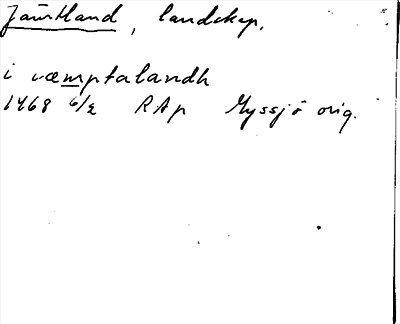 Jämtland, landskap.
i væmptalandh
1468 6/2 RAp Myssjö orig.